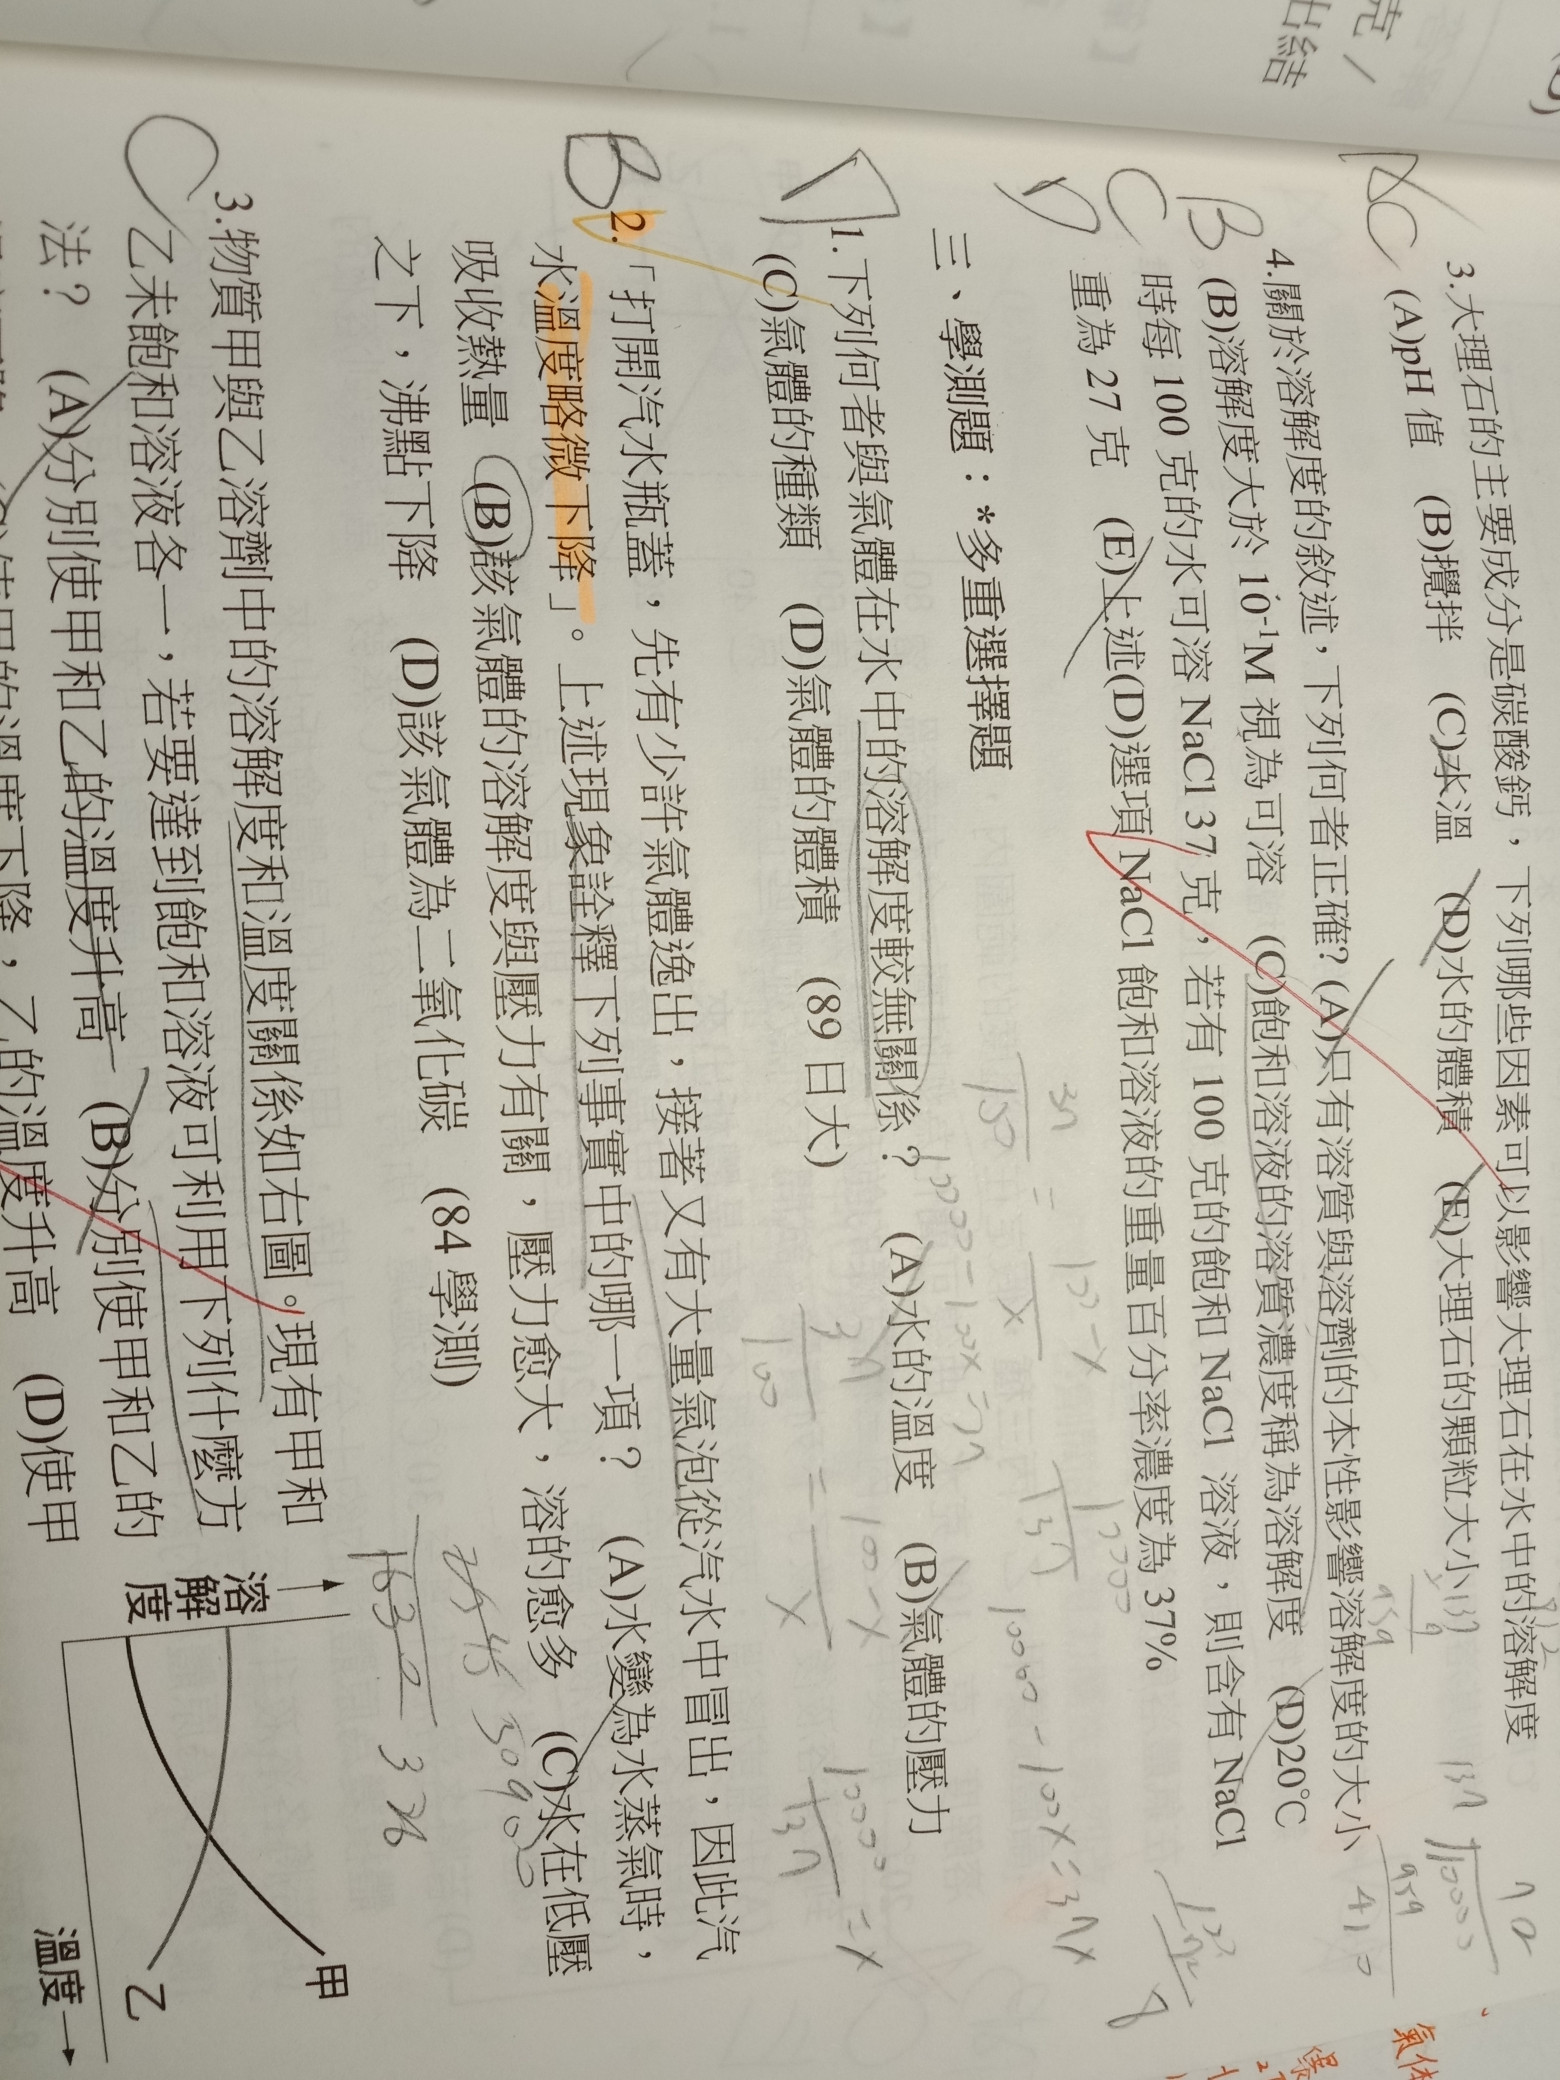 克/
出結
3.大理石的主要成分是碳酸鈣，下列哪些因素可以影響大理石在水中的溶解度
AC (A)pH 值 (B)攪拌 (C)水溫 (D)水的體積 (E)大理石的顆粒大小
4.關於溶解度的敘述，下列何者正確？(A)只有溶質與溶劑的本性影響溶解度的大小
B (B)溶解度大於 10⁻¹M 視為可溶 (C)飽和溶液的溶質濃度稱為溶解度 (D)20℃
C 時每 100 克的水可溶 NaCl 37 克，若有 100 克的飽和 NaCl 溶液，則含有 NaCl
D 重為 27 克 (E)上述(D)選項 NaCl 飽和溶液的重量百分率濃度為 37%
三、學測題：*多重選擇題
D 1.下列何者與氣體在水中的溶解度較無關係？ (A)水的溫度 (B)氣體的壓力
(C)氣體的種類 (D)氣體的體積 (89 日大)
B 2.「打開汽水瓶蓋，先有少許氣體逸出，接著又有大量氣泡從汽水中冒出，因此汽
水溫度略微下降」。上述現象詮釋下列事實中的哪一項？ (A)水變為水蒸氣時，
吸收熱量 (B)該氣體的溶解度與壓力有關，壓力愈大，溶的愈多 (C)水在低壓
之下，沸點下降 (D)該氣體為二氧化碳 (84 學測)
C 3.物質甲與乙溶劑中的溶解度和溫度關係如右圖。現有甲和
乙未飽和溶液各一，若要達到飽和溶液可利用下列什麼方
法？ (A)分別使甲和乙的溫度升高 (B)分別使甲和乙的
使甲的溫度下降，乙的溫度升高 (D)使甲
溶解度
甲
乙
溫度→
37
100
=
100-x
x
10000-100x=37x
10000
137
=x
氣体